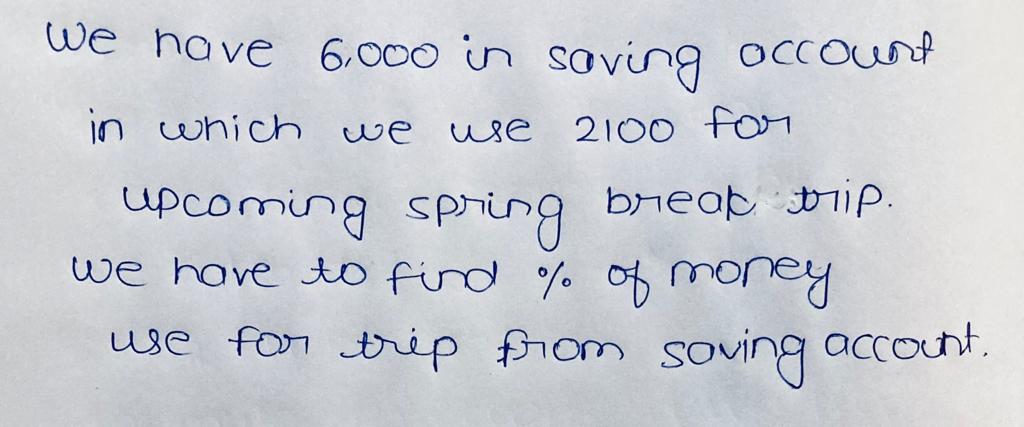 we have 6,000 in saving account
in which we use 2100 for
upcoming spring break trip.
we have to find % of money
use for trip from saving account.